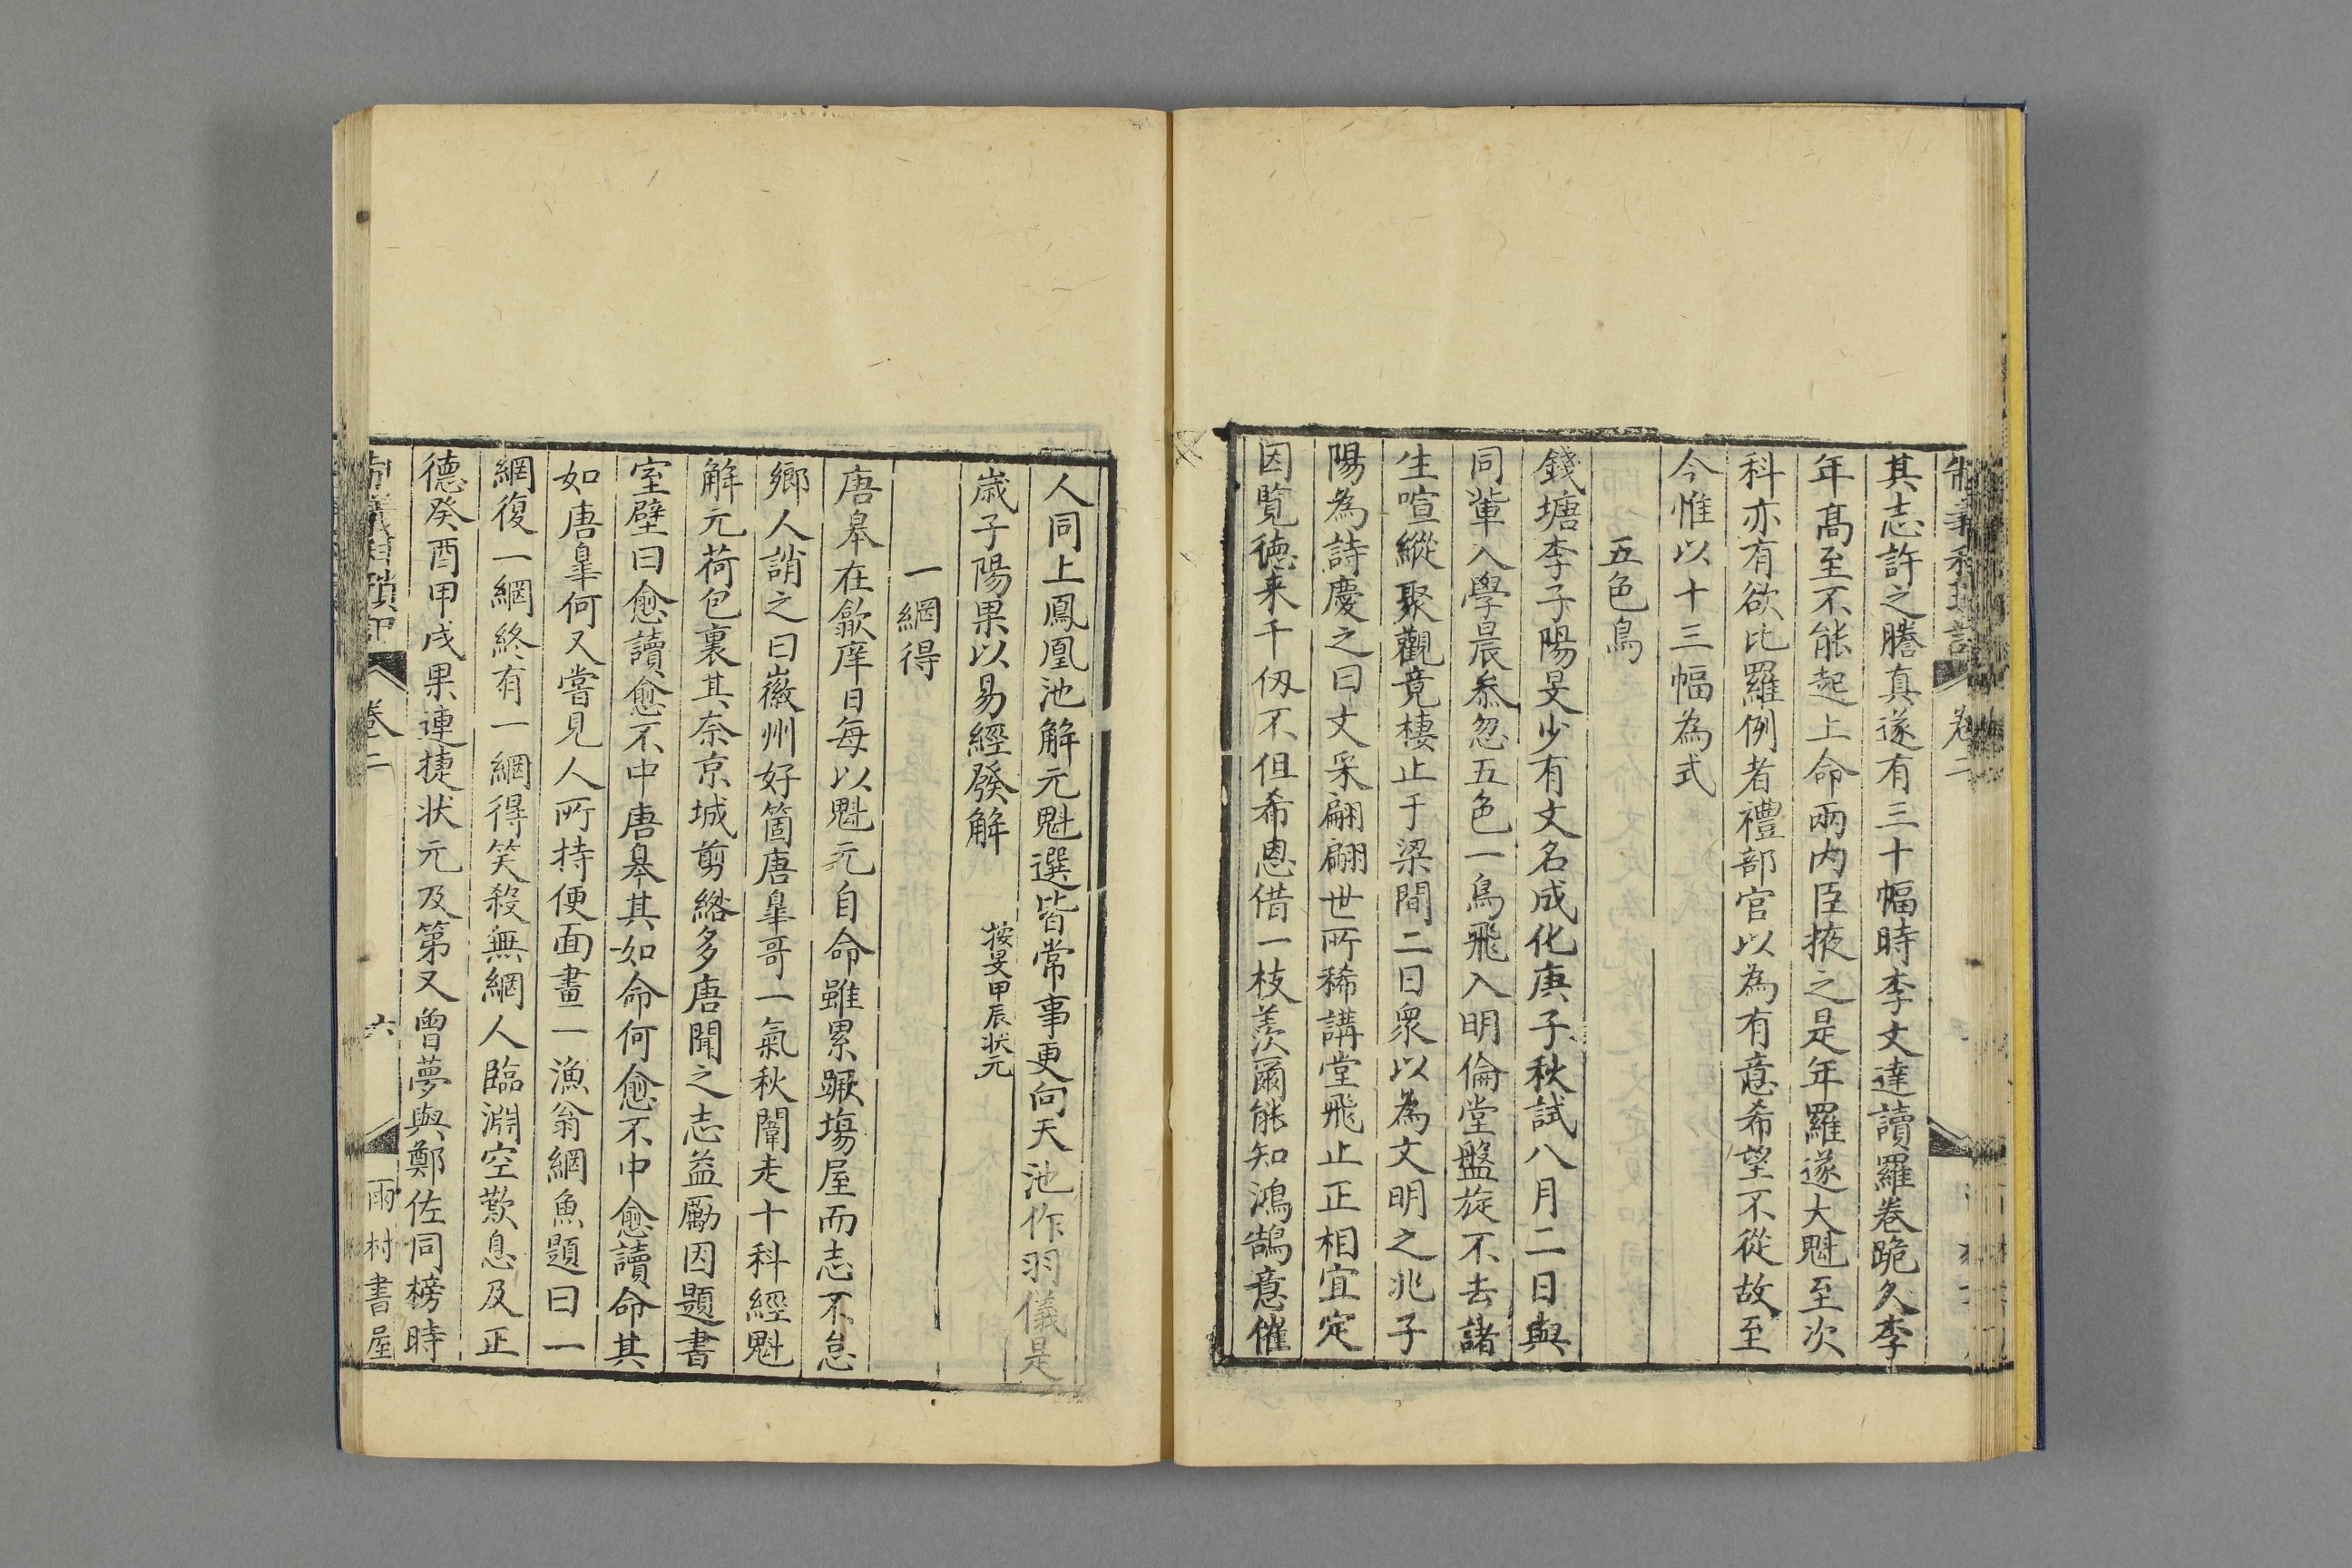 其志許之謄真遂有三十幅時李文達讀羅卷跪久李
年高至不能起上命兩内臣掖之是年羅遂大魁至次
科亦有欲比羅例者禮部官以為有意希望不從故至
今惟以十三幅為式
五色鳥
錢塘李子陽旻少有文名成化庚子秋試八月二日與
同輩入學晨叅忽五色一鳥飛入明倫堂盤旋不去諸
生喧縱聚觀竟棲止于梁間二日衆以為文明之兆子
陽為詩慶之曰文采翩翩世所稀講堂飛止正相宜定
因覧徳来千仭不但希恩借一枝羨爾能知鴻鵠意催
人同上鳳凰池解元魁選皆常事更向天池作羽儀是
歳子陽果以易經發解 按旻甲辰状元
一網得
唐皋在歙庠日每以魁元自命雖累蹶塲屋而志不怠
鄉人誚之曰徽州好箇唐皐哥一氣秋闈走十科經魁
解元荷包裏其奈京城剪綹多唐聞之志益勵因題書
室壁曰愈讀愈不中唐皋其如命何愈不中愈讀命其
如唐皐何又嘗見人所持便面畫一漁翁網魚題曰一
網復一網終有一網得笑殺無網人臨淵空歎息及正
德癸酉甲戌果連捷状元及第又曾夢與鄭佐同榜時
卷二 六 雨村書屋